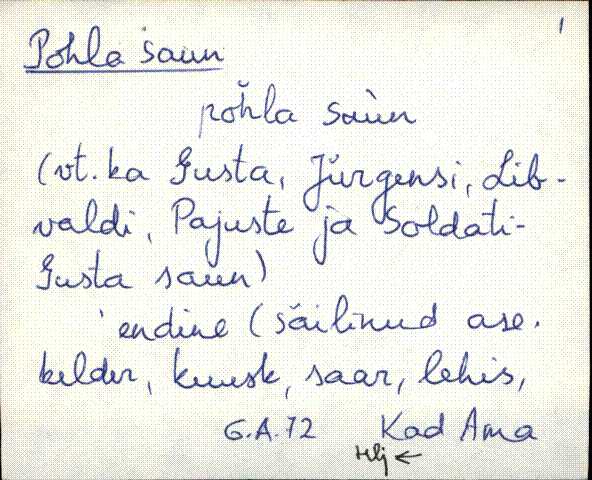 1
Pohla saun
pŏhla saùn
(vt. ka Gusta, Jürgensi, Lib-
valdi, Pajuste ja Soldati-
Gusta saun)
'endine (säilinud ase.
kelder, kuusk, saar, lehis,
G.A.72 Kad Ama
Hlj ←